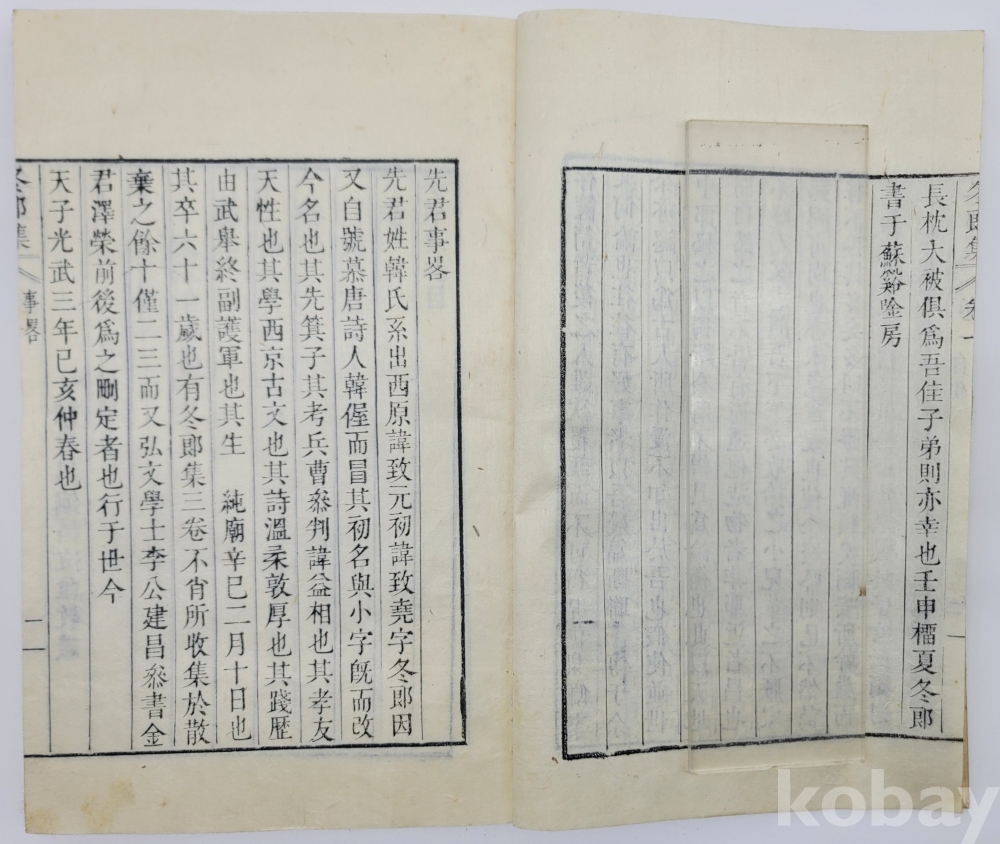 冬郎集 卷一
長枕大被俱爲吾佳子弟則亦幸也壬申橊夏冬郎
書于蘇谿唫房
先君事畧
先君姓韓氏系出西原諱致元初諱致堯字冬郎因
又自號慕唐詩人韓偓而冒其初名與小字旣而改
今名也其先箕子其考兵曹叅判諱益相也其孝友
天性也其學西京古文也其詩溫柔敦厚也其踐歷
由武擧終副護軍也其生 純廟辛巳二月十日也
其卒六十一歲也有冬郎集三卷不肖所收集於散
棄之餘十僅二三而又弘文學士李公建昌叅書金
君澤榮前後爲之刪定者也行于世今
天子光武三年己亥仲春也
冬郎集 事畧 二
kobay